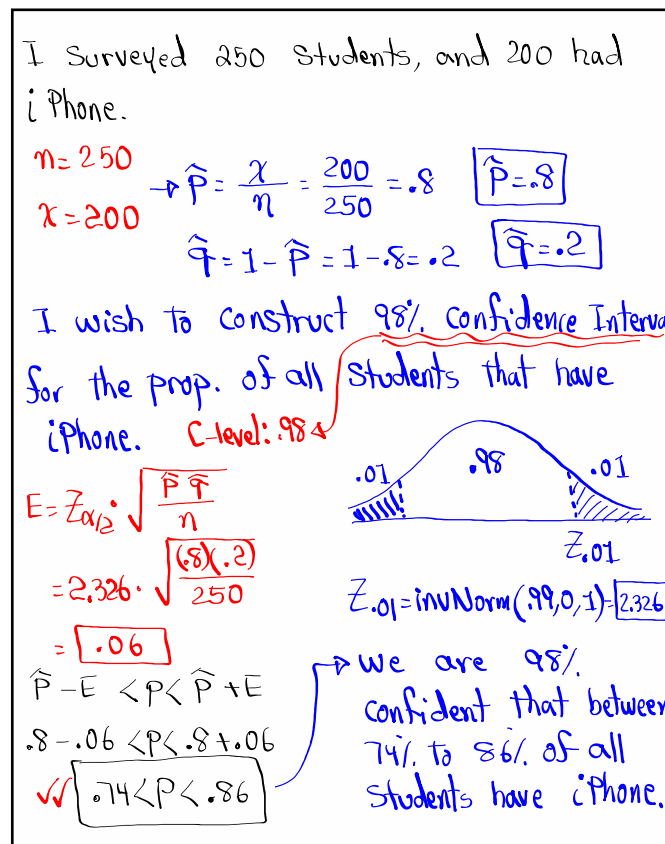 I surveyed 250 students, and 200 had
iPhone.
n=250
x=200
→ p̂ = x/n = 200/250 = .8   p̂=.8
q̂ = 1 - p̂ = 1 - .8 = .2   q̂=.2
I wish to construct 98% Confidence Interva
for the prop. of all students that have
iPhone.   C-level: .98
.01   .98   .01
Z.01
E = Zα/2 · √(p̂ q̂/n)
= 2.326 · √((.8)(.2)/250)
Z.01 = invNorm(.99,0,1) = 2.326
= .06
p̂ - E < P < p̂ + E
.8 - .06 < P < .8 + .06
.74 < P < .86
We are 98%
confident that between
74% to 86% of all
students have iPhone.